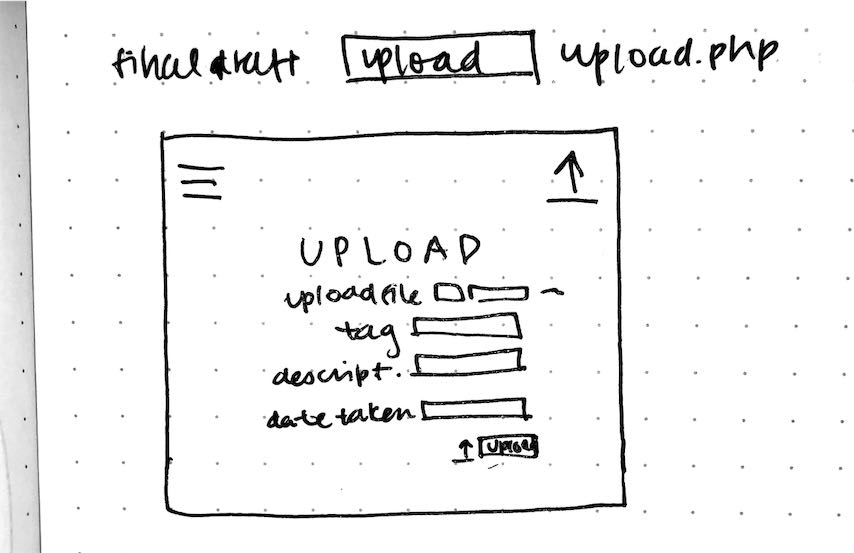 final draft upload upload.php
UPLOAD
upload file
tag
descript.
date taken
upload